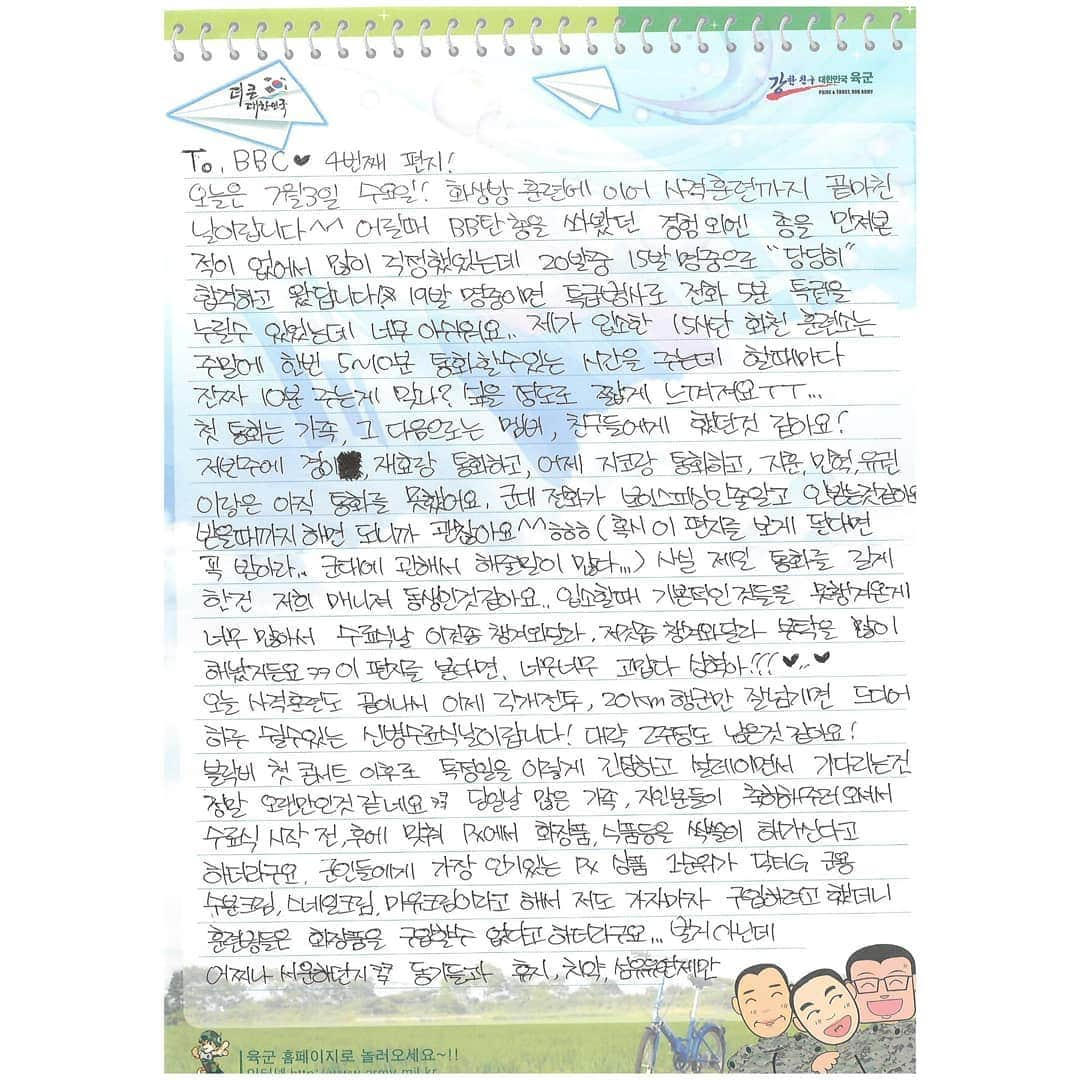 더큰
대한민국
강한친구 대한민국 육군
PRIDE & TRUST, ROK ARMY
To. BBC♥ 4번째 편지!
오늘은 7월3일 수요일! 화생방 훈련에 이어 사격훈련까지 끝마친
날이랍니다^^ 어릴때 BB탄 총을 쏴봤던 경험외엔 총을 만져본
적이 없어서 많이 걱정했었는데 20발중 15발 명중으로 "당당히"
합격하고 왔답니다! 19발 명중이면 특급병사로 전화 5분 특권을
누릴수 있었는데 너무 아쉬워요.. 제가 입소한 15사단 화천 훈련소는
주말에 한번 5~10분 통화할수있는 시간을 주는데 할때마다
진짜 10분 주는게 맞나? 싶을 정도로 짧게 느껴져요ㅜㅜ...
첫 통화는 가족, 그 다음으로는 멤버, 친구들에게 했던것 같아요!
저번주에 경이, 재효랑 통화하고, 어제 지코랑 통화하고, 지훈, 민혁, 유권
이랑은 아직 통화를 못했어요. 군대 전화가 보이스피싱인줄알고 안받는것같아요
받을때까지 하면 되니까 괜찮아요^^ ㅎㅎㅎ (혹시 이 편지를 보게 된다면
꼭 받아라.. 군대에 관해서 해줄말이 많다...) 사실 제일 통화를 길게
한건 저희 매니져 동생인것같아요.. 입소할때 기본적인 것들을 못챙겨온게
너무 많아서 수료식날 이것좀 챙겨와달라, 저것좀 챙겨와달라 부탁을 많이
해놨거든요ㅋㅋ 이 편지를 본다면, 너무너무 고맙다 상혁아!!! ♥..♥
오늘 사격훈련도 끝이나서 이제 각개전투, 20km 행군만 잘넘기면 드디어
하루 쉴수있는 신병수료식날이랍니다! 대략 2주정도 남은것 같아요!
블락비 첫 콘서트 이후로 특정일을 이렇게 긴장하고 설레이면서 기다리는건
정말 오랜만인것 같네요ㅋㅋ 당일날 많은 가족, 지인분들이 축하해주러 오셔서
수료식 시작 전,후에 맞춰 Px에서 화장품, 식품등을 싹쓸이 해가신다고
하더라구요. 군인들에게 가장 인기있는 Px 상품 1순위가 닥터G 군용
수분크림, 스네일크림, 마유크림이라고 해서 저도 가자마자 구입하려고 했더니
훈련병들은 화장품을 구입할수 없다고 하더라구요... 별거 아닌데
어찌나 서운하던지ㅋㅋ 동기들과 휴지, 치약, 섬유유연제만
육군 홈페이지로 놀러오세요~!!
인터넷 http://www.army.mil.kr